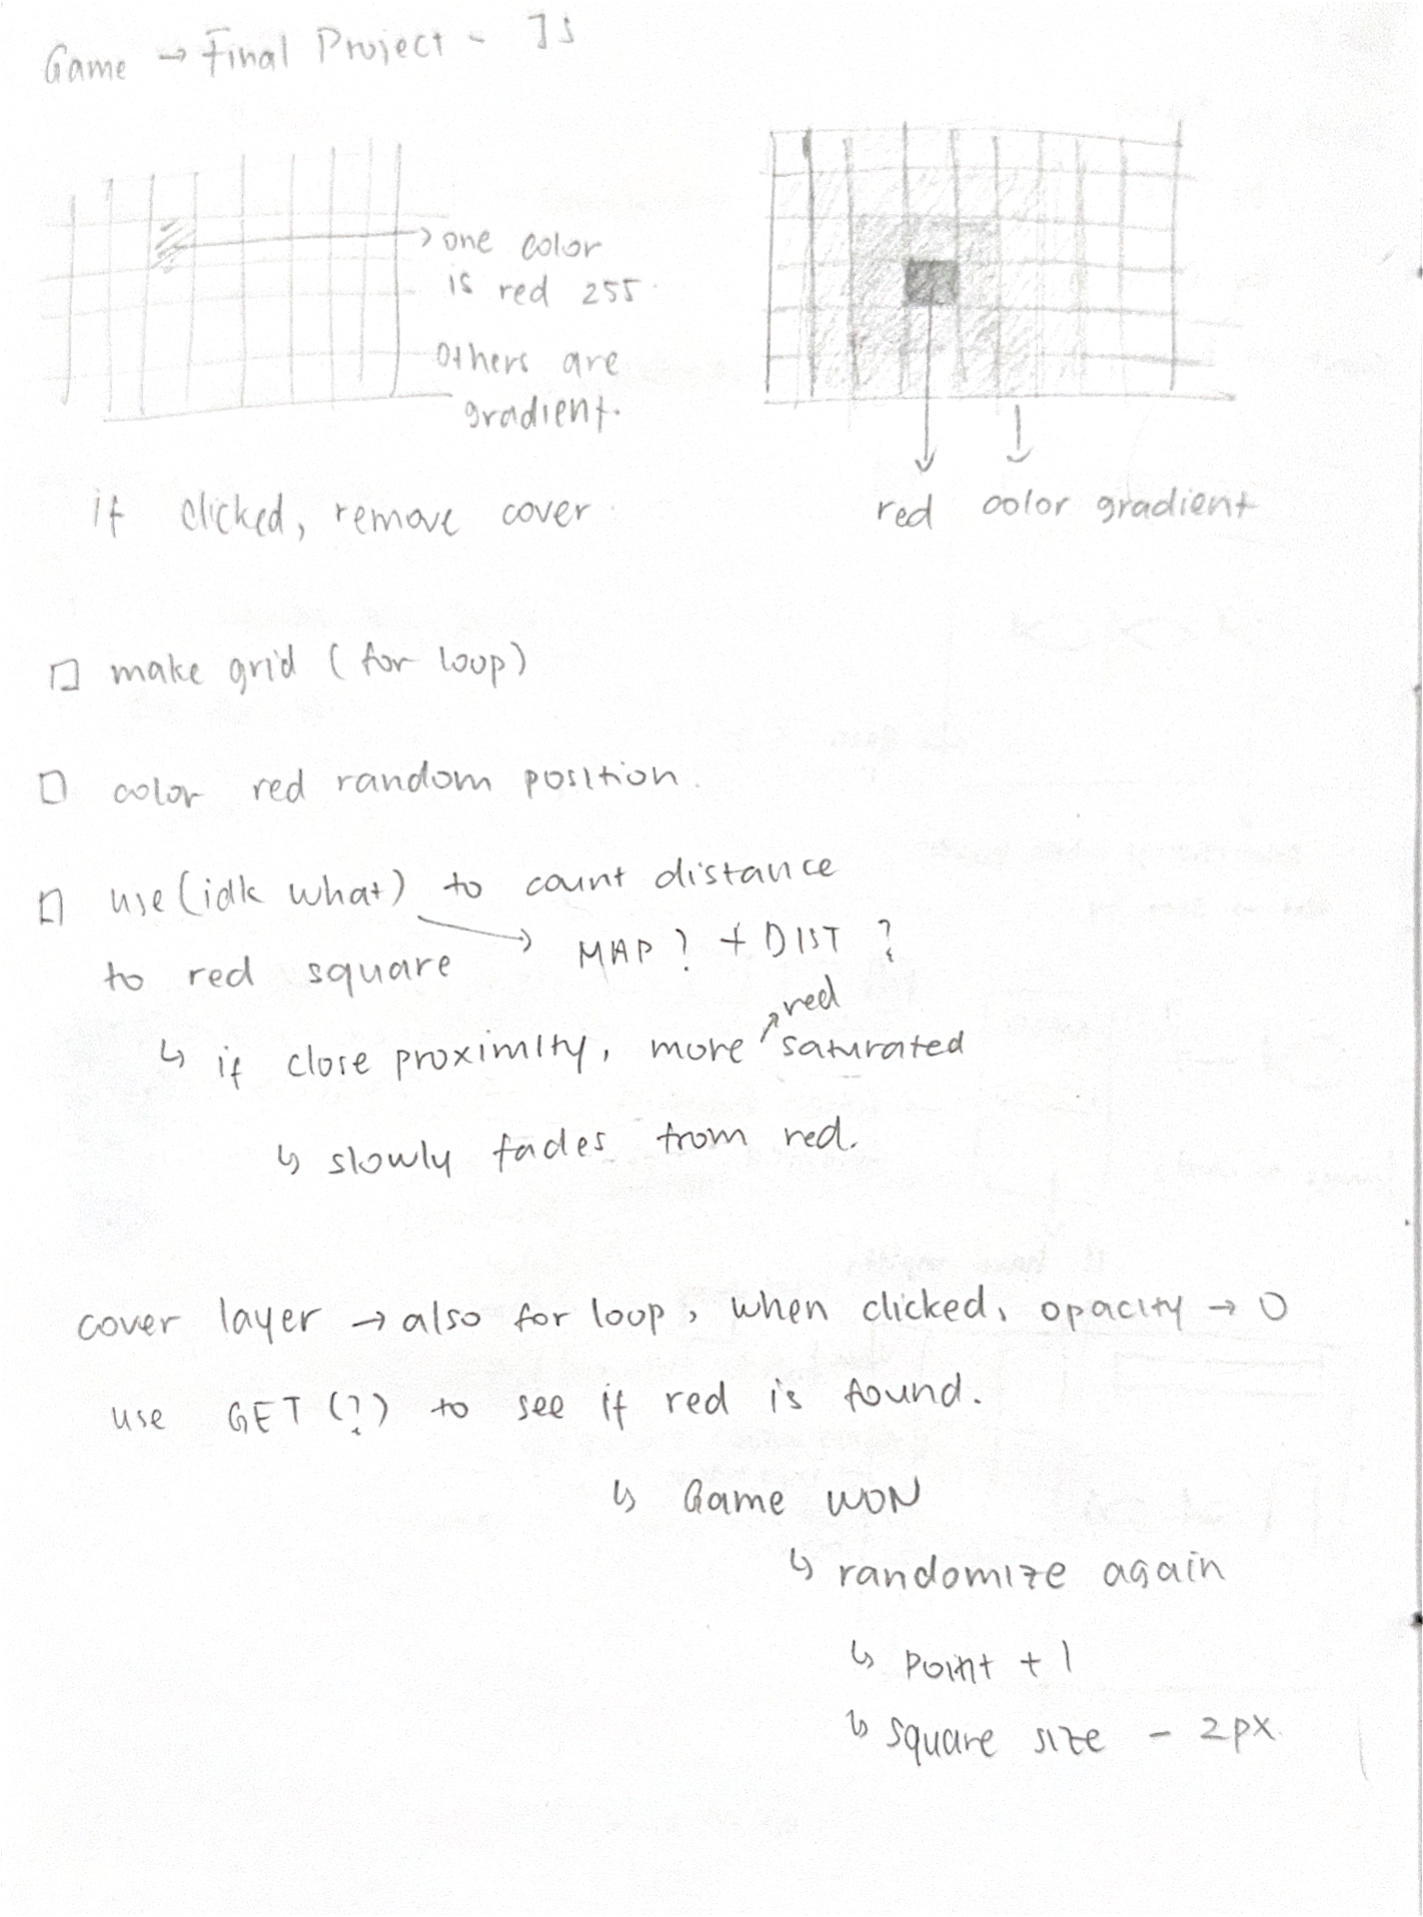 Game → Final Project - JS
→ one color
is red 255
Others are
gradient.
if clicked, remove cover
red color gradient
□ make grid (for loop)
□ color red random position.
□ use (idk what) to count distance
→ MAP? + DIST?
to red square
red
↳ if close proximity, more saturated
↳ slowly fades from red.
cover layer → also for loop, when clicked, opacity → 0
use GET (?) to see if red is found.
↳ Game WON
↳ randomize again
↳ point + 1
↳ square size - 2px.